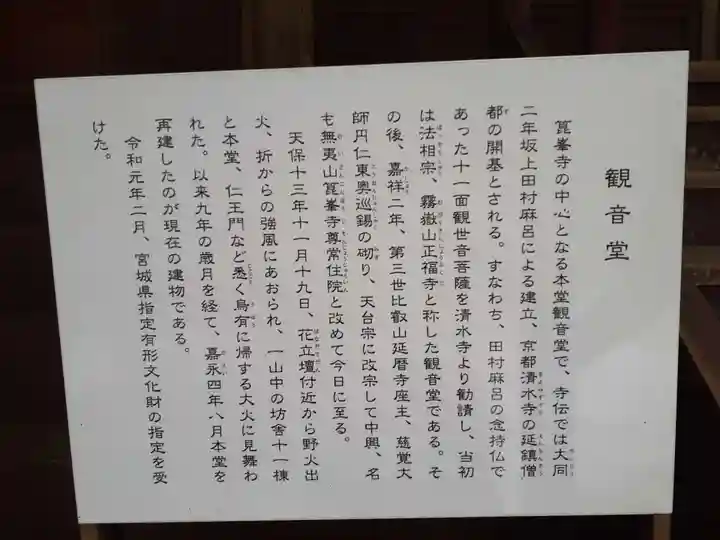 観音堂
箟峯寺の中心となる本堂観音堂で、寺伝では大同
二年坂上田村麻呂による建立、京都清水寺の延鎮僧
都の開基とされる。すなわち、田村麻呂の念持仏で
あった十一面観世音菩薩を清水寺より勧請し、当初
は法相宗、霧嶽山正福寺と称した観音堂である。そ
の後、嘉祥二年、第三世比叡山延暦寺座主、慈覚大
師円仁東奥巡錫の砌り、天台宗に改宗して中興、名
も無夷山箟峯寺尊常住院と改めて今日に至る。
天保十三年十一月十九日、花立壇付近から野火出
火、折からの強風にあおられ、一山中の坊舎十一棟
と本堂、仁王門など悉く烏有に帰する大火に見舞わ
れた。以来九年の歳月を経て、嘉永四年八月本堂を
再建したのが現在の建物である。
令和元年二月、宮城県指定有形文化財の指定を受
けた。